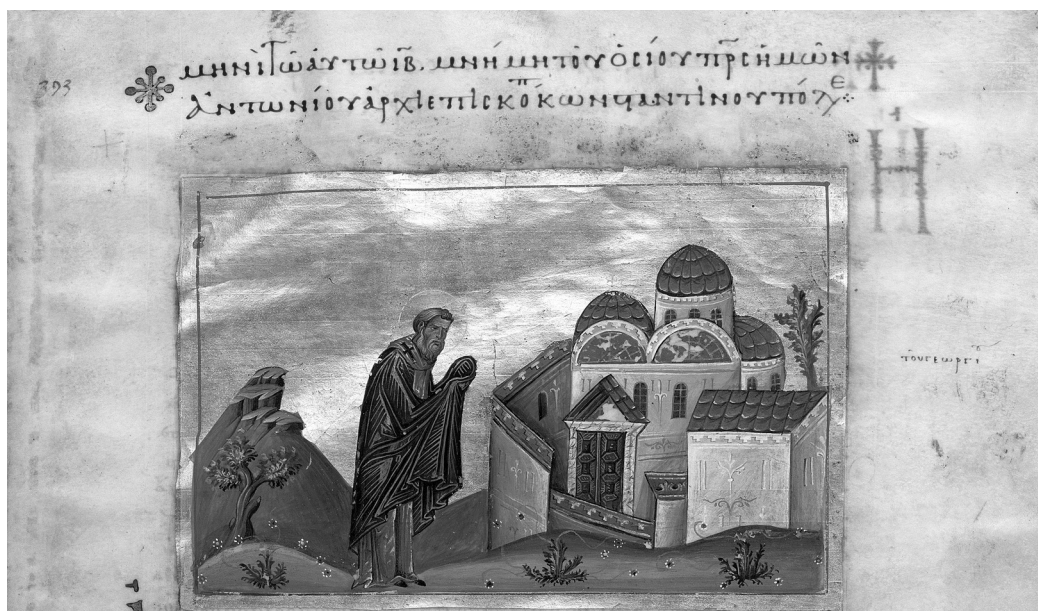 393
μηνὶ τῶ αὐτῶ ιβ. μνήμη τοῦ ὁσίου πρς ἡμῶν
ἀντωνίου ἀρχιεπισκόπ κωνσταντινουπόλε
Η
τοῦ σεωρσι